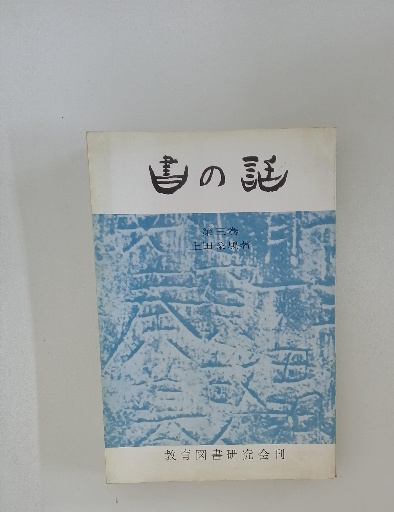 書の話
第三巻
上田桑鳩著
教育図書研究会刊